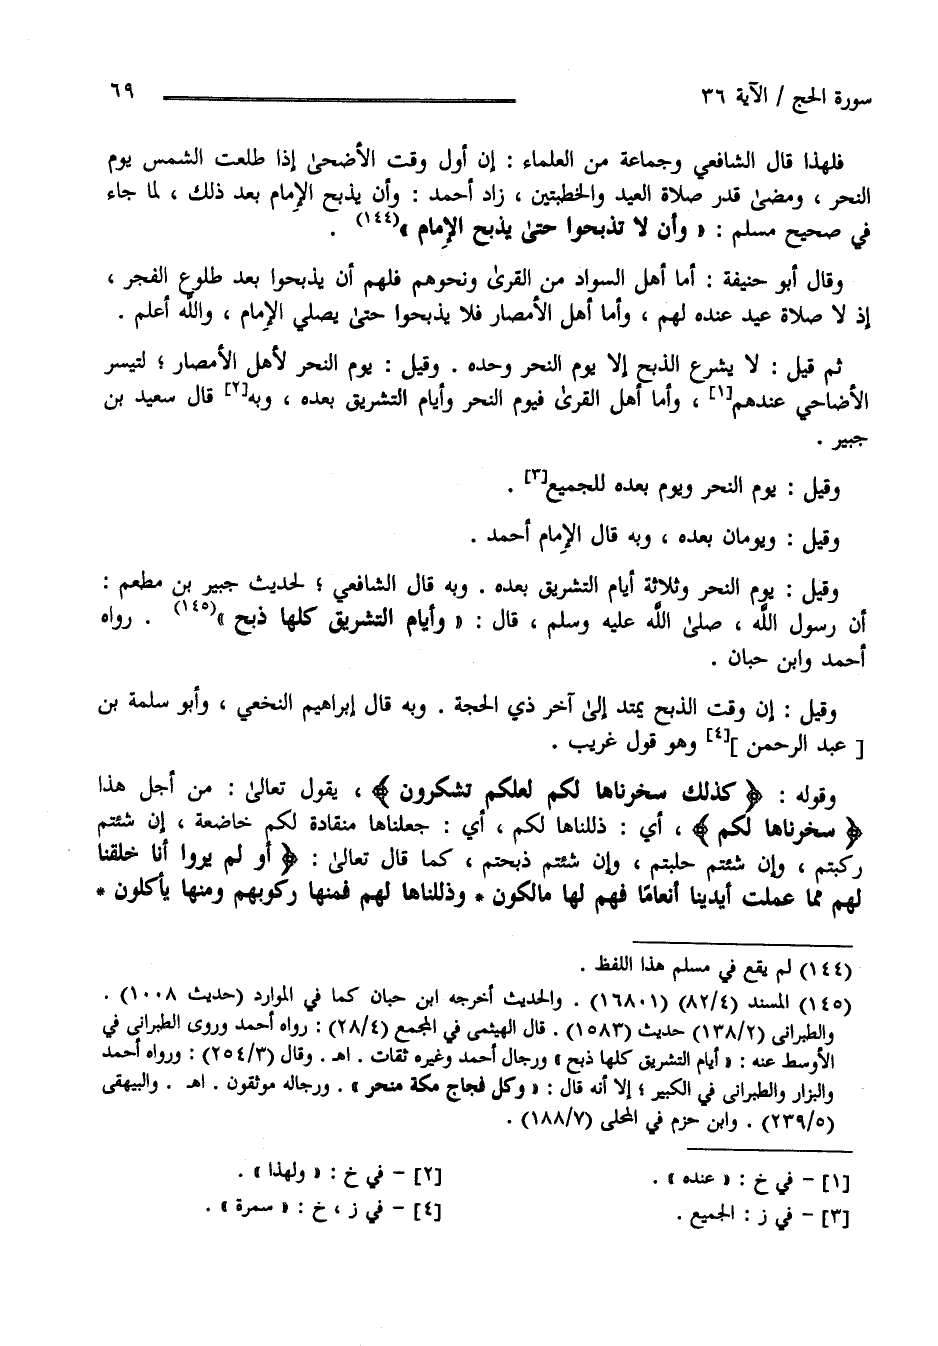 سورة الحج / الآية ٣٦ ٦٩
فلهذا قال الشافعي وجماعة من العلماء : إن أول وقت الأضحىٰ إذا طلعت الشمس يوم
النحر ، ومضىٰ قدر صلاة العيد والخطبتين ، زاد أحمد : وأن يذبح الإمام بعد ذلك ، لما جاء
في صحيح مسلم : « وأن لا تذبحوا حتىٰ يذبح الإمام »(١٤٤) .
وقال أبو حنيفة : أما أهل السواد من القرىٰ ونحوهم فلهم أن يذبحوا بعد طلوع الفجر ،
إذ لا صلاة عيد عنده لهم ، وأما أهل الأمصار فلا يذبحوا حتىٰ يصلي الإمام ، واللَّه أعلم .
ثم قيل : لا يشرع الذبح إلا يوم النحر وحده . وقيل : يوم النحر لأهل الأمصار ؛ لتيسر
الأضاحي عندهم[١] ، وأما أهل القرىٰ فيوم النحر وأيام التشريق بعده ، وبه[٢] قال سعيد بن
جبير .
وقيل : يوم النحر ويوم بعده للجميع[٣] .
وقيل : ويومان بعده ، وبه قال الإمام أحمد .
وقيل : يوم النحر وثلاثة أيام التشريق بعده . وبه قال الشافعي ؛ لحديث جبير بن مطعم :
أن رسول اللَّه ، صلىٰ اللَّه عليه وسلم ، قال : « وأيام التشريق كلها ذبح »(١٤٥) . رواه
أحمد وابن حبان .
وقيل : إن وقت الذبح يمتد إلىٰ آخر ذي الحجة . وبه قال إبراهيم النخعي ، وأبو سلمة بن
[ عبد الرحمن ][٤] وهو قول غريب .
وقوله : ﴿ كذلك سخرناها لكم لعلكم تشكرون ﴾ ، يقول تعالىٰ : من أجل هذا
﴿ سخرناها لكم ﴾ ، أي : ذللناها لكم ، أي : جعلناها منقادة لكم خاضعة ، إن شئتم
ركبتم ، وإن شئتم حلبتم ، وإن شئتم ذبحتم ، كما قال تعالىٰ : ﴿ أو لم يروا أنا خلقنا
لهم مما عملت أيدينا أنعامًا فهم لها مالكون * وذللناها لهم فمنها ركوبهم ومنها يأكلون *
(١٤٤) لم يقع في مسلم هذا اللفظ .
(١٤٥) المسند (٨٢/٤) (١٦٨٠١) . والحديث أخرجه ابن حبان كما في الموارد (حديث ١٠٠٨) .
والطبراني (١٣٨/٢) حديث (١٥٨٣) . قال الهيثمى في المجمع (٢٨/٤) : رواه أحمد وروى الطبرانى في
الأوسط عنه : « أيام التشريق كلها ذبح » ورجال أحمد وغيره ثقات . اهـ . وقال (٢٥٤/٣) : ورواه أحمد
والبزار والطبرانى في الكبير ؛ إلا أنه قال : « وكل فجاج مكة منحر » . ورجاله موثقون . اهـ . والبيهقى
(٢٣٩/٥) . وابن حزم في المحلى (١٨٨/٧) .
[١] – في خ : « عنده » . [٢] – في خ : « ولهذا » .
[٣] – في ز : الجميع . [٤] – في ز ، خ : « سمرة » .